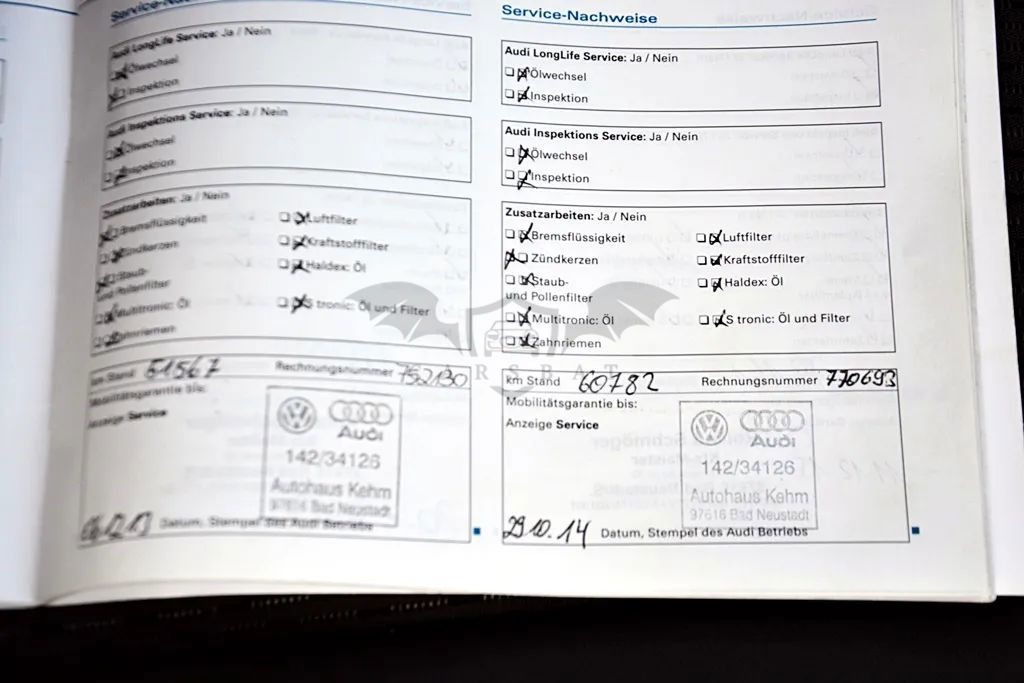 Service-Nachweise
Audi LongLife Service: Ja / Nein
Ölwechsel
Inspektion
Audi Inspektions Service: Ja / Nein
Ölwechsel
Inspektion
Zusatzarbeiten: Ja / Nein
Bremsflüssigkeit
Luftfilter
Zündkerzen
Kraftstofffilter
Staub-
und Pollenfilter
Haldex: Öl
Multitronic: Öl
S tronic: Öl und Filter
Zahnriemen
km Stand 61567 Rechnungsnummer 752130
Mobilitätsgarantie bis:
Anzeige Service
Audi
142/34126
Autohaus Kehm
97616 Bad Neustadt
Datum, Stempel des Audi Betriebs
Service-Nachweise
Audi LongLife Service: Ja / Nein
Ölwechsel
Inspektion
Audi Inspektions Service: Ja / Nein
Ölwechsel
Inspektion
Zusatzarbeiten: Ja / Nein
Bremsflüssigkeit
Luftfilter
Zündkerzen
Kraftstofffilter
Staub-
und Pollenfilter
Haldex: Öl
Multitronic: Öl
S tronic: Öl und Filter
Zahnriemen
km Stand 60782 Rechnungsnummer 770693
Mobilitätsgarantie bis:
Anzeige Service
Audi
142/34126
Autohaus Kehm
97616 Bad Neustadt
29.10.14 Datum, Stempel des Audi Betriebs